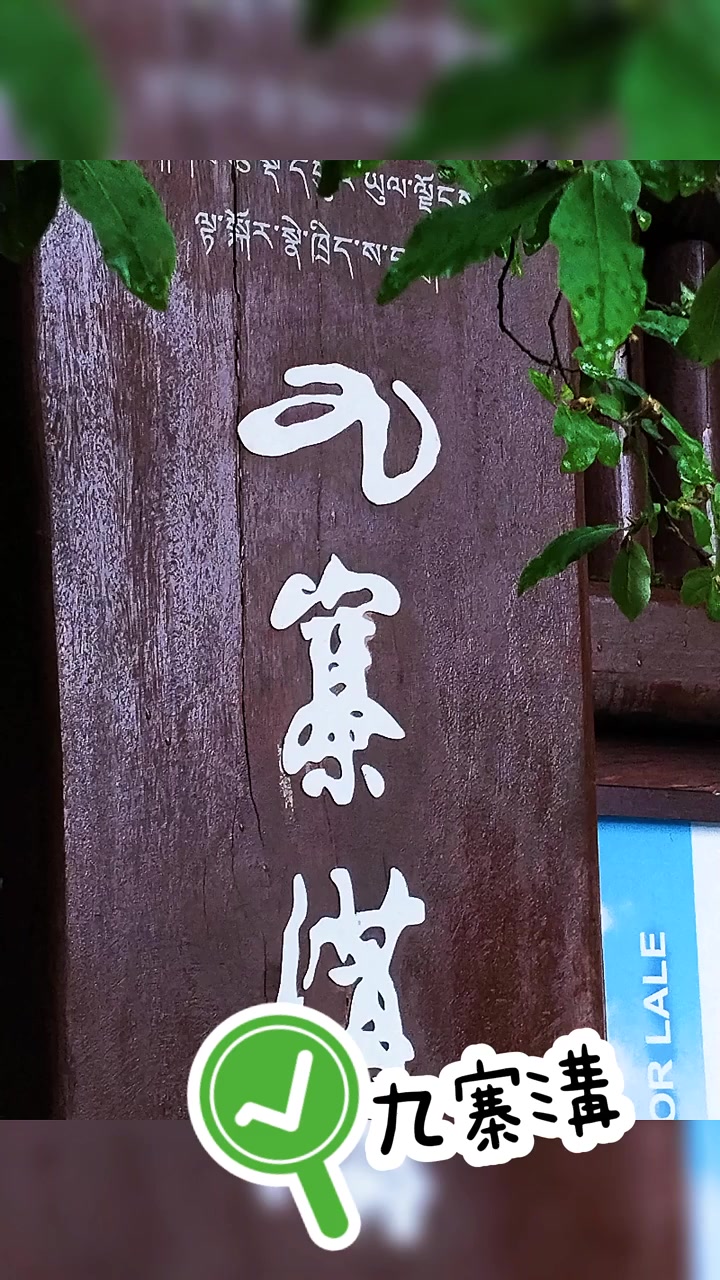 ཡུལ་ལྗོངས
ལྟ་སྐོར་སྣེ་ཁྲིད་ས
九寨溝
OR LALE
九寨溝